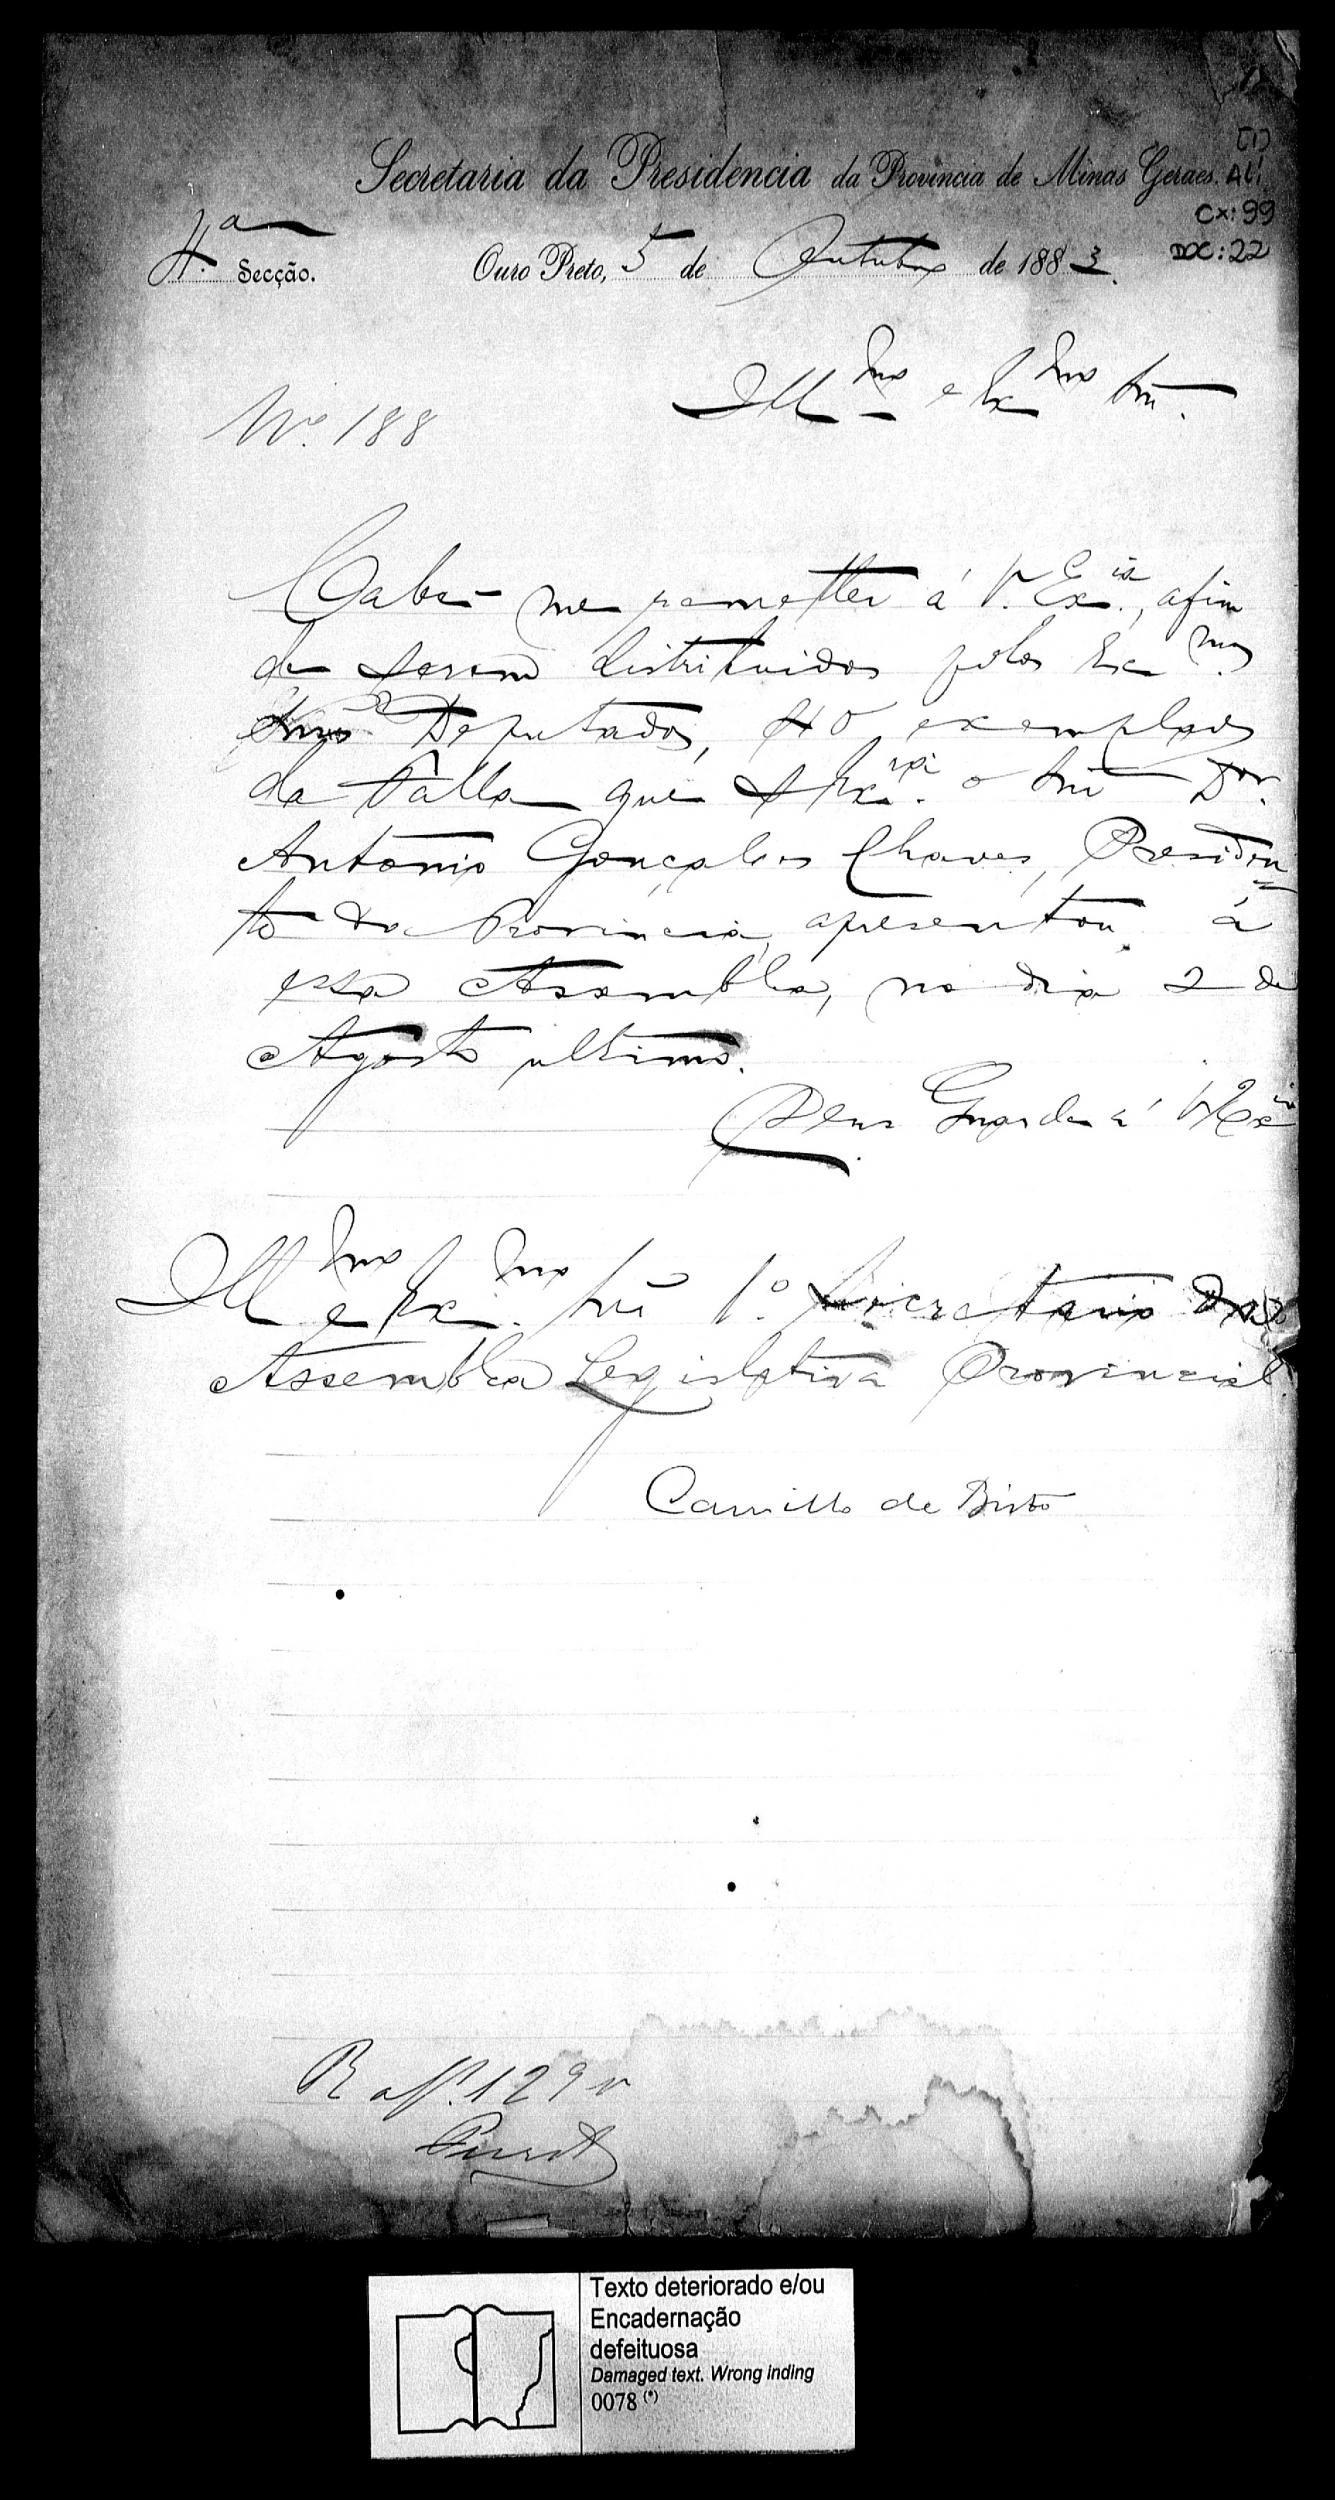 (1)
AL1
cx: 99
DOC: 22
Secretaria da Presidencia da Provincia de Minas Geraes.
4.ª Secção. Ouro Preto, 5 de Outubro de 1883.
Ill.mo e Ex.mo Snr.
N.º 188
Cabe-me remetter á V. Ex.cia, afim
de serem distribuidos pelos Ex.mos
Snrs Deputados, 40 exemplares
da Falla que S Ex.cia o Snr Dor.
Antonio Gonçalves Chaves, Presiden-
te da Provincia, apresentou á
essa Assembléa, no dia 2 de
Agosto ultimo.
Deus Guarde á V. Ex.cia
Ill.mo e Ex.mo Snr 1.º Secretario da
Assembléa Legislativa Provincial.
Camillo de Brito
R a fl. 129 v
Texto deteriorado e/ou
Encadernação
defeituosa
Damaged text. Wrong inding
0078 (*)